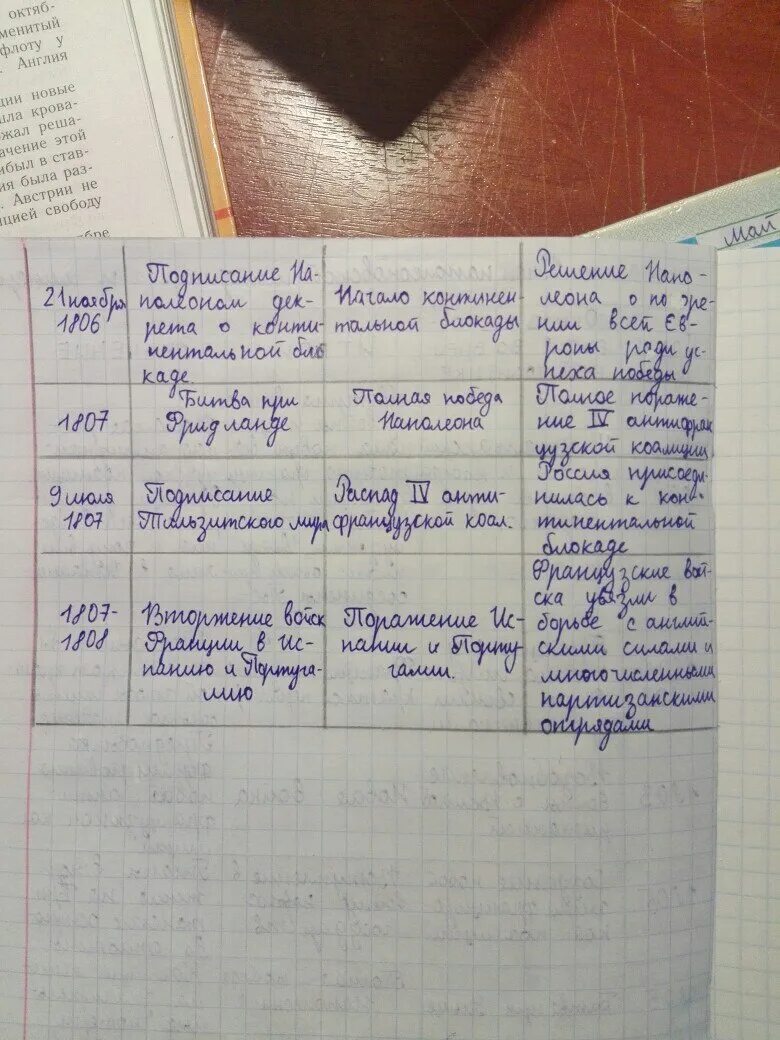 октяб-
менитый
флоту у
Англия
ции новые
шла крова-
ржал реша-
ачение этой
ибыл в став-
ия была раз-
. Австрии не
цией свободу
бре
май
21 ноября
1806
Подписание На-
полеоном дек-
рета о конти-
нентальной бло
каде
Начало континен-
тальной блокады
Решение Напо-
леона о по зре-
нии всей Ев-
ропы ради ус-
пеха победы
1807
Битва при
Фридланде
Полная победа
Наполеона
Полное пораже-
ние IV антифран
цузской коалиции
9 июля
1807
Подписание
Тильзитского мира
Распад IV анти-
французской коал.
Россия присоеди-
нилась к кон-
тинентальной
блокаде
1807-
1808
Вторжение войск
Франции в Ис-
панию и Португа-
лию
Поражение Ис-
пании и Порту
галии.
Французские вой-
ска увязли в
борьбе с англий-
скими силами и
многочисленными
партизанскими
отрядами